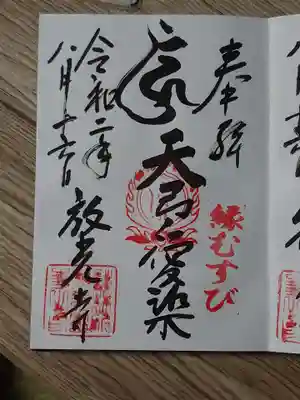 奉拝
縁むすび
天弓愛染
令和二年
八月十六日
放光寺